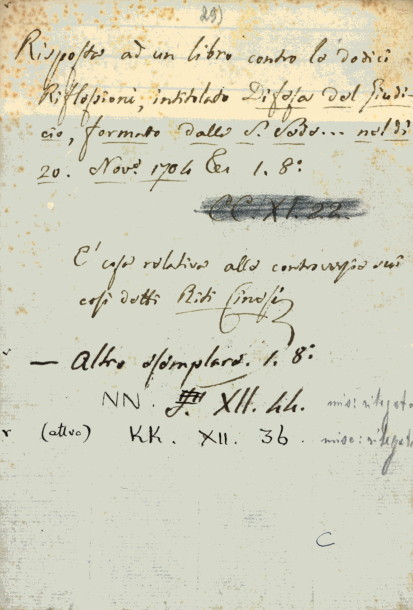 29)
Risposta ad un libro contro le dodici
Riflessioni, intitolato Difesa del Giudi-
cio, formato dalla S. Sede... nel dì
20. Nov.e 1704 Ec. 1. 8.°
CC. XI. 22.
E' cosa relativa alla controversia sui
così detti Riti Cinesi
— Altro esemplare. 1. 8.°
NN. XII. 44. misc: rilegata
(altro) KK. XII. 36. misc: rilegata
C